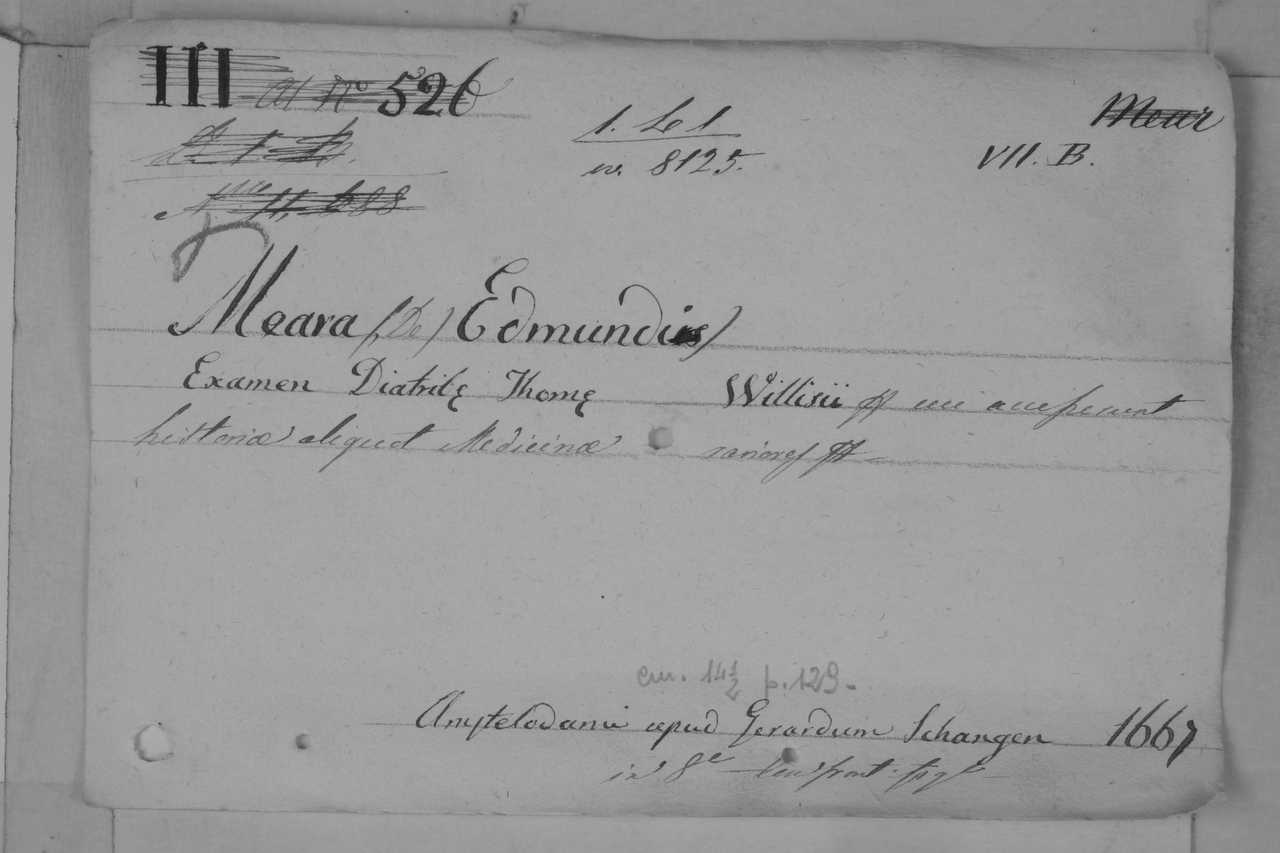 III 526
1. Le 1
Meur
w. 8125.
VII. B.
Meara (De) Edmundus)
Examen Diatribę Thomę Willisii cui accesserunt
historiæ aliquot Medicinæ rariores
cm. 14½ p. 129.
Amstelodami apud Gerardum Schangen 1667
in 8º